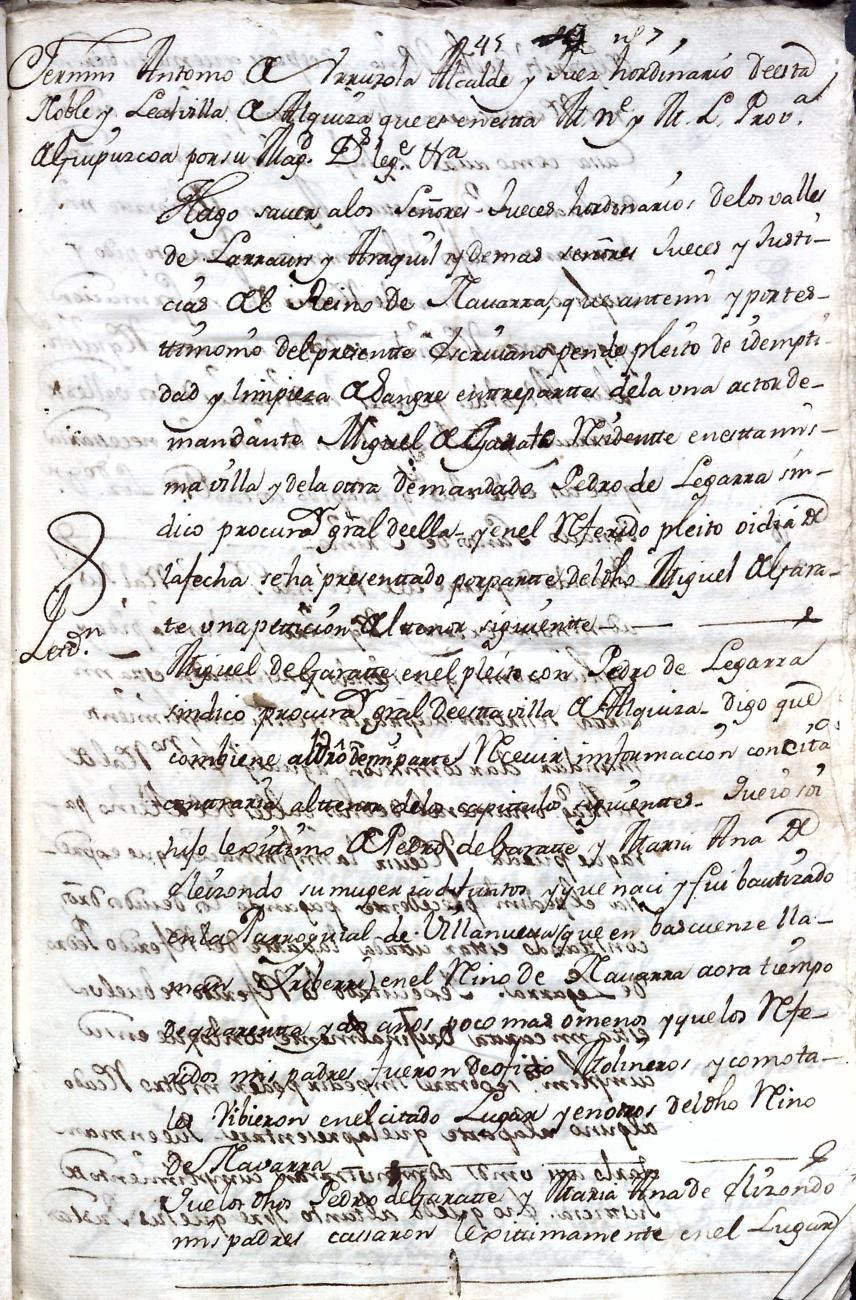 245, nº 7,
Fermin Antonio de Urruzola Alcalde y Juez hordinario de esta
Noble y Leal villa de Alquiza que es en esta M. Nᵉ y M. L. Provᵃ
de Guipuzcoa por su Magᵈ Dˢ legᵉ ttᵃ
Hago saver a los Señores Jueces hordinarios de los valles
de Larraun y Araquil y demas señores Jueces y Justi-
cias del Reino de Navarra, que ante mi y por tes-
ttimonio del presentte Escrivano pende pleito de idempti-
dad y limpieza de Sangre entre parttes de la una actor de-
mandante Miguel de Garate Residentte en estta mis-
ma villa y de la ottra demandado Pedro de Legarra sin-
dico procurᵒʳ grãl de ella y en el Referido pleito oi dia de
la fecha se ha presenttado por partte del dho Miguel de Gara-
te una peticion del tenor siguientte
Miguel de Garatte en el pleito con Pedro de Legarra
sindico procurᵒʳ grãl de estta villa de Alquiza digo que
combiene al dr̃o de mi parte Recevir informacion con citaᵒⁿ
contraria al tenor de los capitulos siguienttes. Que io soi
hijo lexitimo de Pedro de Garatte y Maria Ana de
Elizondo su muger ia difuntos y que naci y fui bautizado
en la Parroquial de Villanueva que en bascuenze lla-
man (Iriberri) en el Rino de Navarra aora tiempo
de quarentta y dos años poco mas o menos y que los Refe-
ridos mis padres fueron de oficio Molineros y como ta-
les Vibieron en el citado Lugar y en otros del dho Rino
de Navarra
Que los dhos Pedro de Garatte y Maria Ana de Elizondo
mis padres cassaron lexitimamente en el Lugar